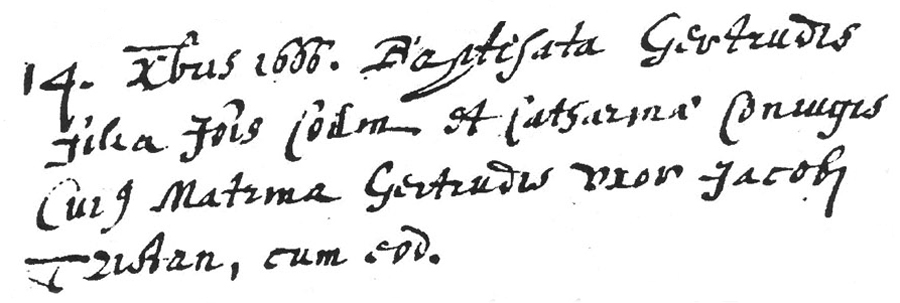 14. Xbris 1666. Baptisata Gertrudis
filia Jois Codm et Catharina Coniugis
Cui9 Matrina Gertrudis uxor Jacobi
Tristan, cum eod.